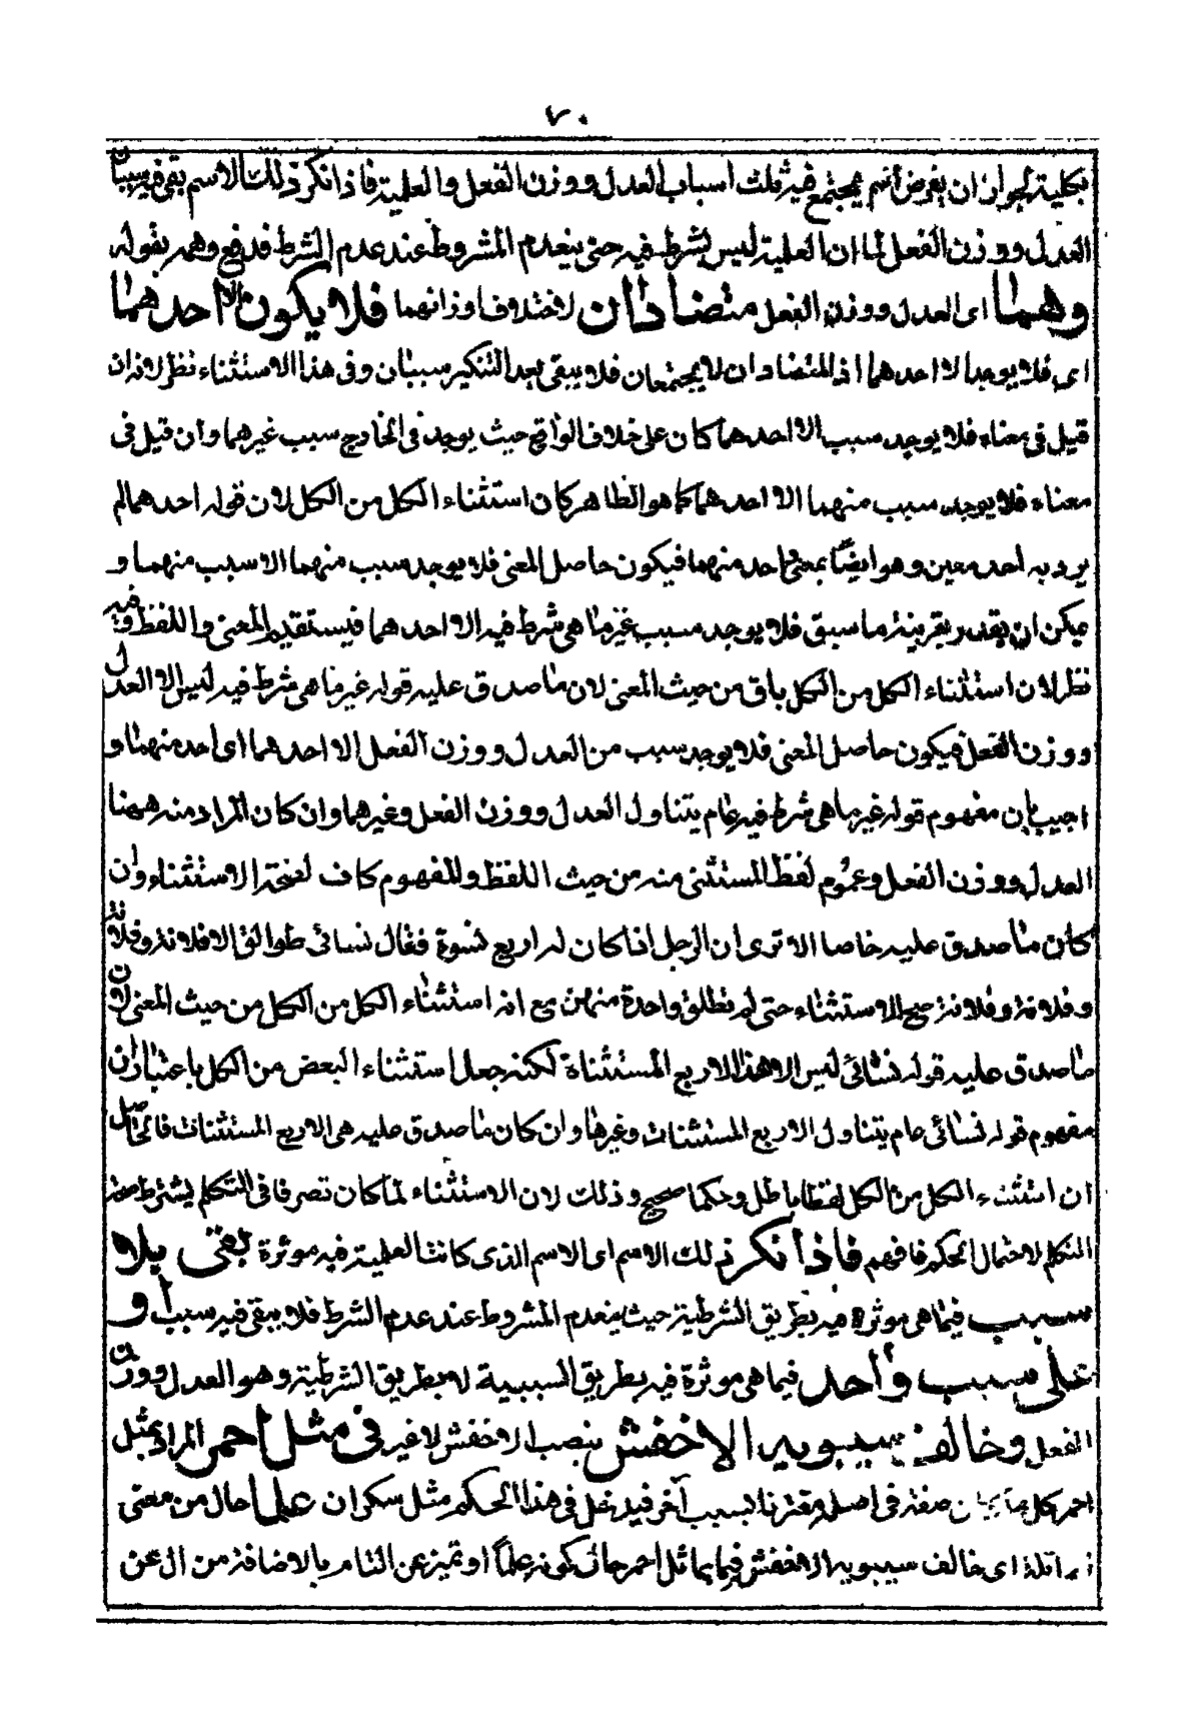 ٧٠
بكلية لجواز ان يفرض اسم يجتمع فيه ثلث اسباب العدل ووزن الفعل والعلمية فاذا نكر ذلك الاسم بقي فيه سببان
العدل ووزن الفعل لما ان العلمية ليس بشرط فيه حتى ينعدم المشروط عند عدم الشرط فدفع وهمه بقوله
وهما اى العدل ووزن الفعل متضادان لاختلاف اوزانهما فلا يكون الا احدهما
اى فلا يوجد الا احدهما اذ المتضادان لا يجتمعان فلا يبقى بعد التنكير سببان وفى هذا الاستثناء نظر لانه ان
قيل فى معناه فلا يوجد سبب الا احدهما كان على خلاف الواقع حيث يوجد فى الخارج سبب غيرهما وان قيل فى
معناه فلا يوجد سبب منهما الا احدهما كما هو الظاهر كان استثناء الكل من الكل لان قوله احدهما لم
يرد به احد معين وهو ايضًا بمعنى احد منهما فيكون حاصل المعنى فلا يوجد سبب منهما الا سبب منهما و
يمكن ان يقدر بقرينة ما سبق فلا يوجد سبب غير ما هى شرط فيه الا احدهما فيستقيم المعنى واللفظ وفيه
نظر لان استثناء الكل من الكل باق من حيث المعنى لان ما صدق عليه قوله غير ما هى شرط فيه ليس الا العدل
ووزن الفعل فيكون حاصل المعنى فلا يوجد سبب من العدل ووزن الفعل الا احدهما اى احد منهما و
اجيب بان مفهوم قوله غير ما هى شرط فيه عام يتناول العدل ووزن الفعل وغيرهما وان كان المراد منه ههنا
العدل ووزن الفعل وعموم لفظ المستثنى منه من حيث اللفظ والمفهوم كاف لصحة الاستثناء وان
كان ما صدق عليه خاصا الا ترى ان الرجل اذا كان له اربع نسوة فقال نسائى طوالق الا فلانة وفلانة
وفلانة وفلانة صح الاستثناء حتى لم تطلق واحدة منهن مع انه استثناء الكل من الكل من حيث المعنى لان
ما صدق عليه قوله نسائى ليس الا هذا الاربع المستثناة لكنه جعل استثناء البعض من الكل باعتبار ان
مفهوم قوله نسائى عام يتناول الاربع المستثنات وغيرها وان كان ما صدق عليه هى الاربع المستثنات فالحاصل
ان استثناء الكل من الكل لفظا باطل وحكما صحيح وذلك لان الاستثناء لما كان تصرفا فى التكلم يشترط صحة
التكلم لاحتمال الحكم فافهم فاذا نكر ذلك الاسم اى الاسم الذى كانت العلمية فيه موثرة بقى بلا
سبب فيما هى موثرة فيه بطريق الشرطية حيث ينعدم المشروط عند عدم الشرط فلا يبقى فيه سبب او
على سبب واحد فيما هى موثرة فيه بطريق السببية لا بطريق الشرطية وهو العدل ووزن
الفعل وخالف سيبويه الاخفش بنصب الاخفش لا غير فى مثل احمر المراد بمثل
احمر كل ما كان صفة فى اصله مقترنا لسبب آخر فيدخل فى هذا الحكم مثل سكران علما حال من معنى
اى خالف سيبويه الاخفش فيما يماثل احمر حال كونه علمًا او تميز عن التام بالاضافة من ال عن